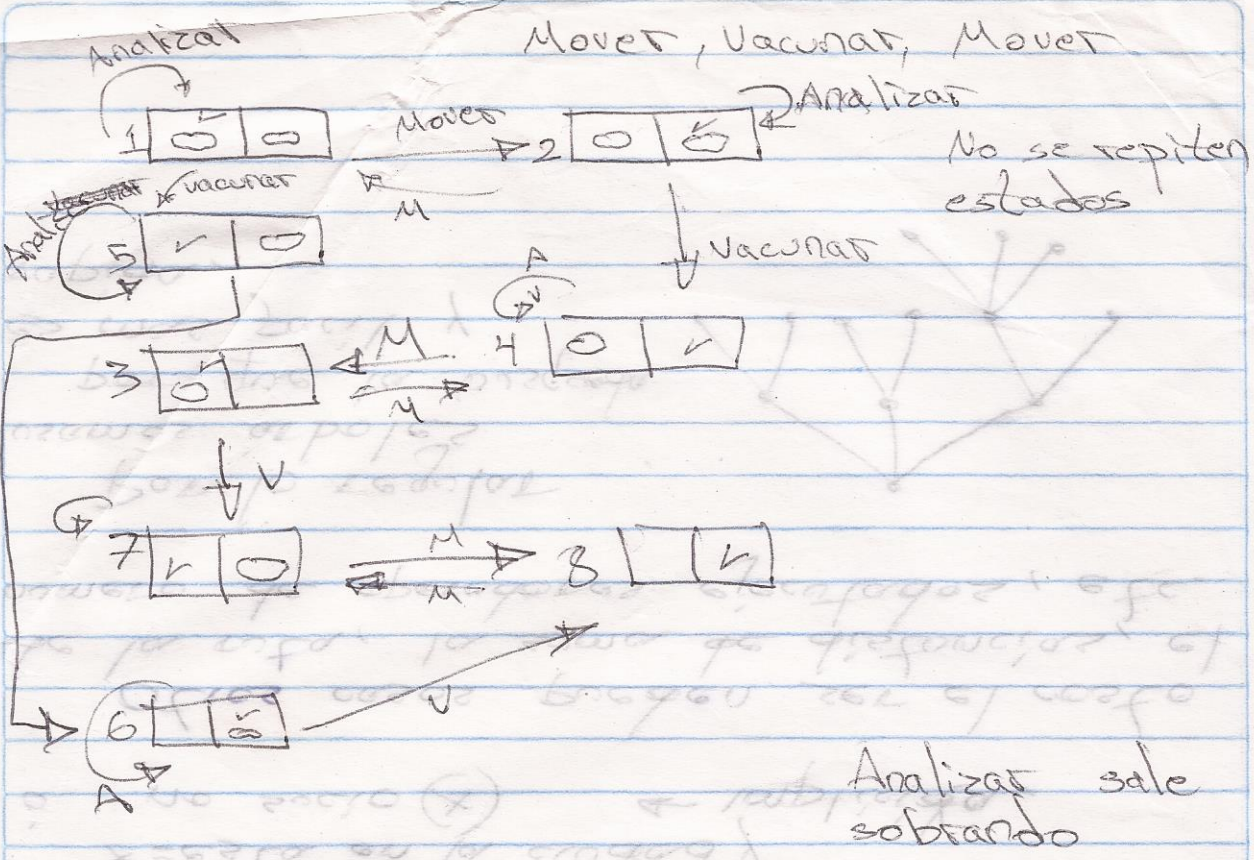 Analizar
Mover, Vacunar, Mover
1
Mover
2
Analizar
M
No se repiten
estados
vacunar
Analiz
5
Vacunar
A
3
M
4
M
V
7
M
8
M
6
V
A
Analizar sale
sobrando